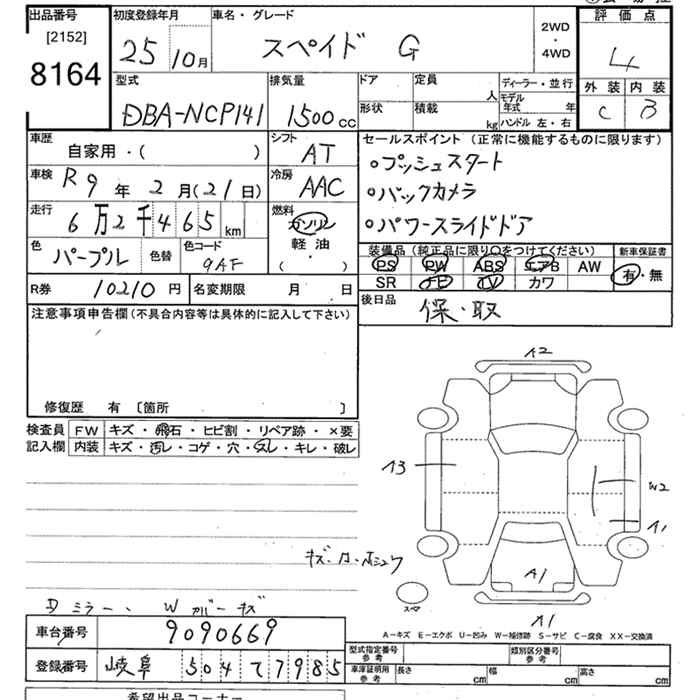 出品番号 初度登録年月 車名・グレード 2WD・4WD 評価点
[2152]
8164 25 10月 スペイド G 4
型式 排気量 ドア 定員 人 ディーラー・並行 外装 内装
DBA-NCP141 1500cc 形状 積載 kg モデル年式 年 C B
ハンドル 左・右
車歴 シフト セールスポイント(正常に機能するものに限ります)
自家用・( ) AT 。プッシュスタート
車検 R9年2月(21日) 冷房 AAC 。バックカメラ
走行 6万2千465km 燃料 ガソリン 。パワースライドドア
軽油
・
( )
色 パープル 色替 色コード 9AF
装備品(純正品に限り○をつけてください) 新車保証書
PS PW ABS エアB AW 有・無
SR ナビ TV カワ
R券 10210円 名変期限 月 日 後日品 保・取
注意事項申告欄(不具合内容等は具体的に記入して下さい)
修復歴 有 〔箇所 〕
検査員 FW キズ・飛石・ヒビ割・リペア跡・×要
記入欄 内装 キズ・汚レ・コゲ・穴・スレ・キレ・破レ
A2
A3
W2
A1
A1
スペア
A1
Dミラー、Wカバーキズ
A－キズ E－エクボ U－凹み W－補修跡 S－サビ C－腐食 XX－交換済
車台番号 9090669
登録番号 岐阜 504 て7985
型式指定番号 参考 類別区分番号
車庫証明用 参考 長さ cm 幅 cm 高さ cm
希望出品コーナー